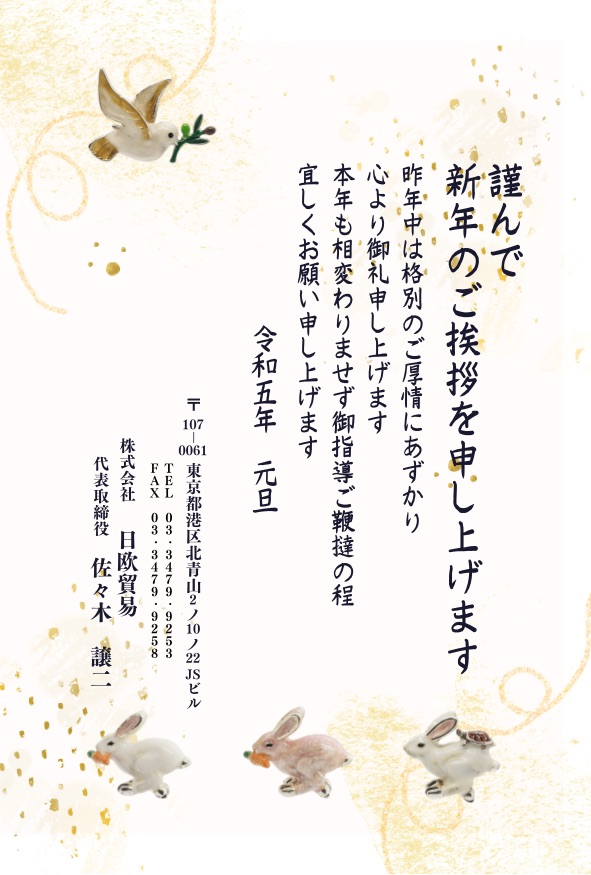 謹んで
新年のご挨拶を申し上げます
昨年中は格別のご厚情にあずかり
心より御礼申し上げます
本年も相変わりませず御指導ご鞭撻の程
宜しくお願い申し上げます
令和五年　元旦
〒107―0061 東京都港区北青山2ノ10ノ22 JSビル
TEL 03・3479・9253
FAX 03・3479・9258
株式会社　日欧貿易
代表取締役　佐々木　譲二